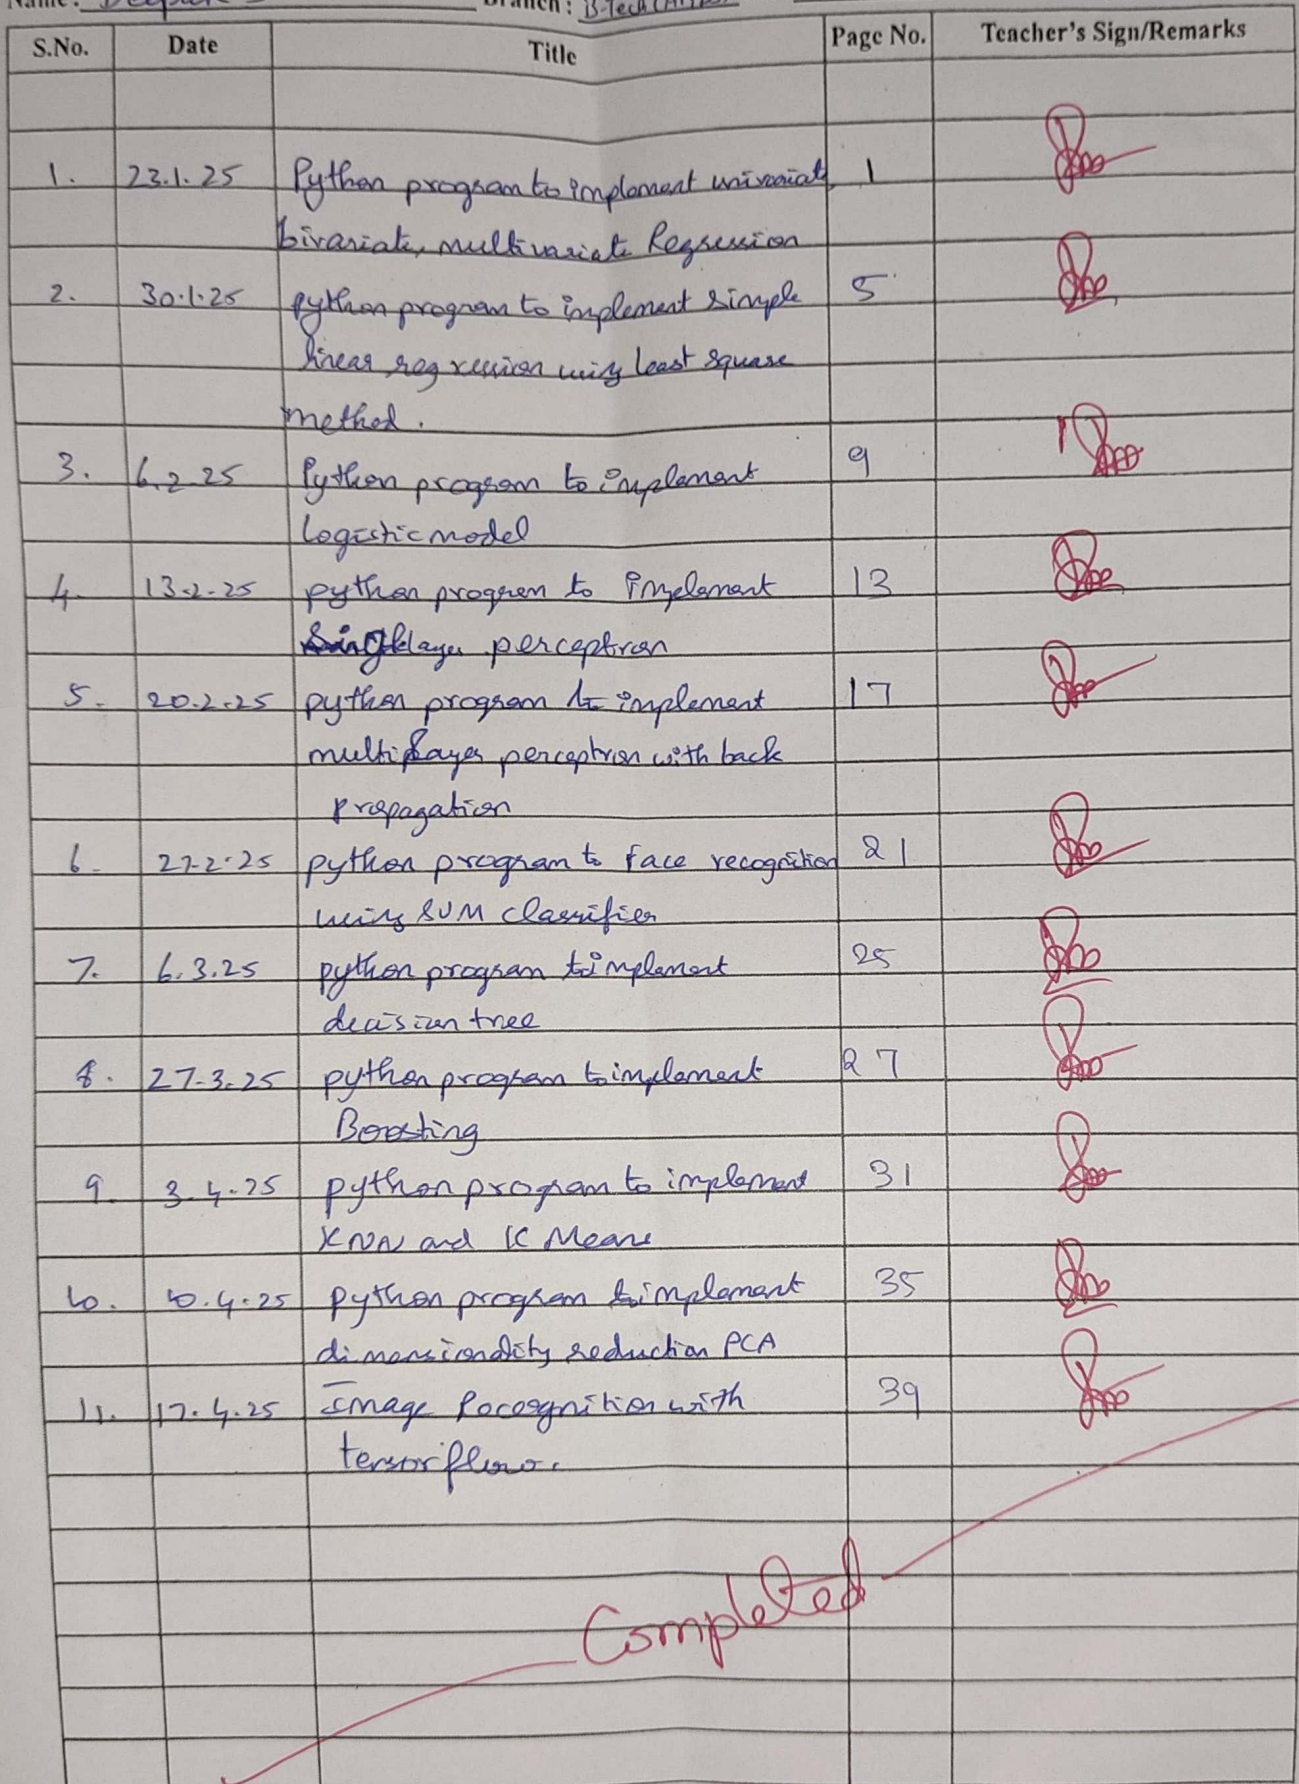 Name: Deepak
Branch: B-Tech
S.No. Date Title Page No. Teacher's Sign/Remarks
1. 23.1.25 Python program to implement univariate, 1
bivariate, multivariate Regression
2. 30.1.25 python program to implement simple 5
linear regression using least square
method.
3. 6.2.25 Python program to implement 9
logistic model
4. 13.2.25 python program to implement 13
Single layer perceptron
5. 20.2.25 python program to implement 17
multi layer perceptron with back
propagation
6. 27.2.25 python program to face recognition 21
using SVM classifier
7. 6.3.25 python program to implement 25
decision tree
8. 27.3.25 python program to implement 27
Boosting
9. 3.4.25 python program to implement 31
KNN and K Means
10. 10.4.25 python program to implement 35
dimensionality reduction PCA
11. 17.4.25 Image Recognition with 39
tensorflow.
Completed